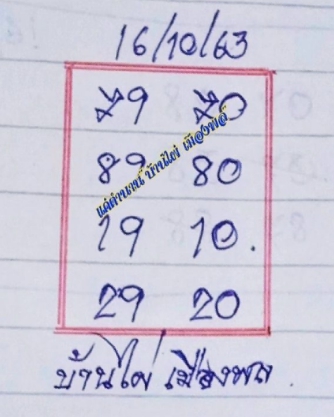 16/10/63
79 70
89 80
แค่ตำนานนี้ บ้านไผ่ เมืองพล
19 10.
29 20
บ้านไผ่ เมืองพล.